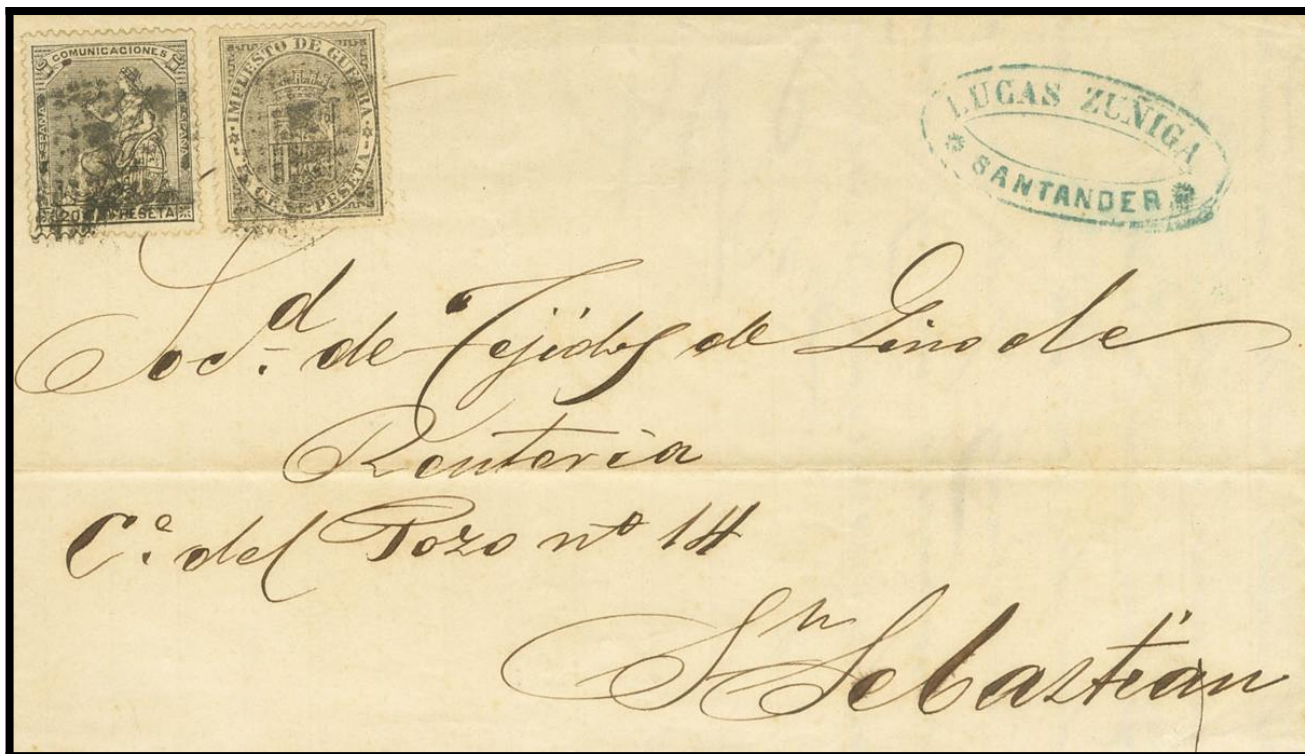 COMUNICACIONES
ESPAÑA
ESPAÑA
20 PESETA
IMPUESTO DE GUERRA
5 CENS. PESETA
LUCAS ZUÑIGA
SANTANDER
Socd. de Tejidos de Lino de
Renteria
Ce. del Pozo nº 14
Sn Sebastián